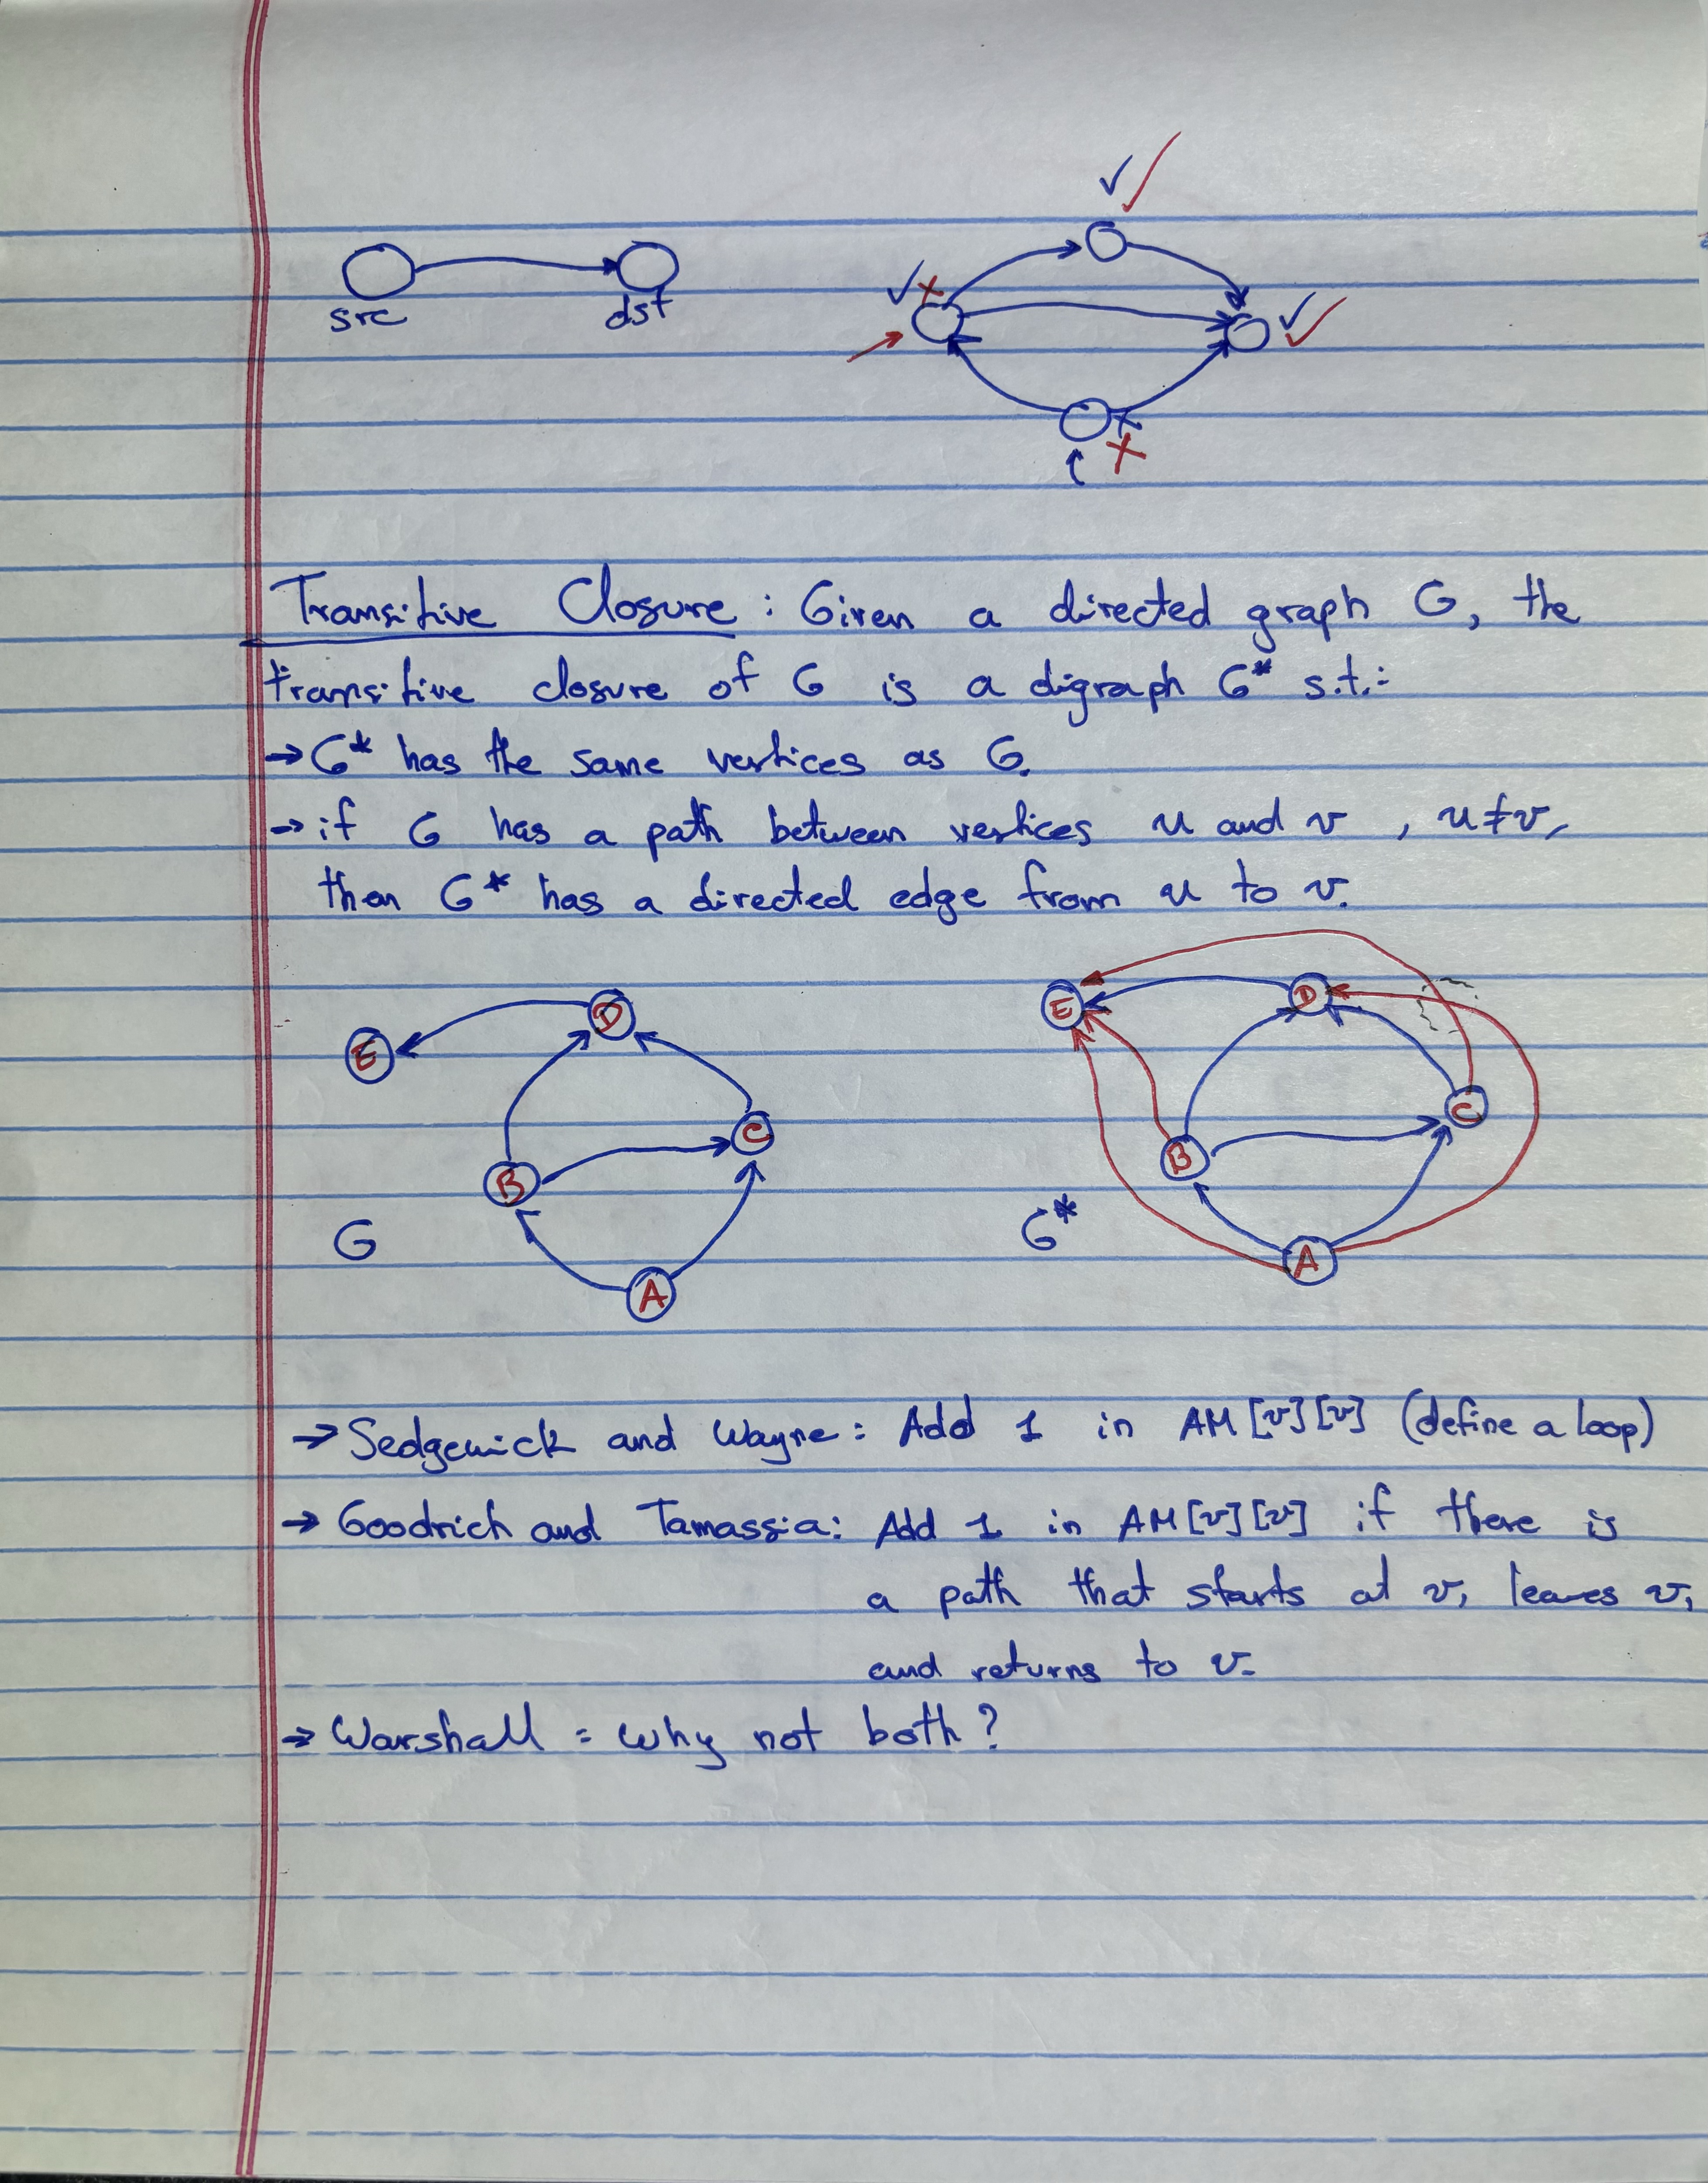 src
dst
Transitive Closure : Given a directed graph G, the
transitive closure of G is a digraph G* s.t.:
→ G* has the same vertices as G.
→ if G has a path between vertices u and v , u≠v,
then G* has a directed edge from u to v.
E
D
B
C
A
G
E
D
B
C
A
G*
→ Sedgewick and Wayne : Add 1 in AM[v][v] (define a loop)
→ Goodrich and Tamassia: Add 1 in AM[v][v] if there is
a path that starts at v, leaves v,
and returns to v.
→ Warshall = why not both?